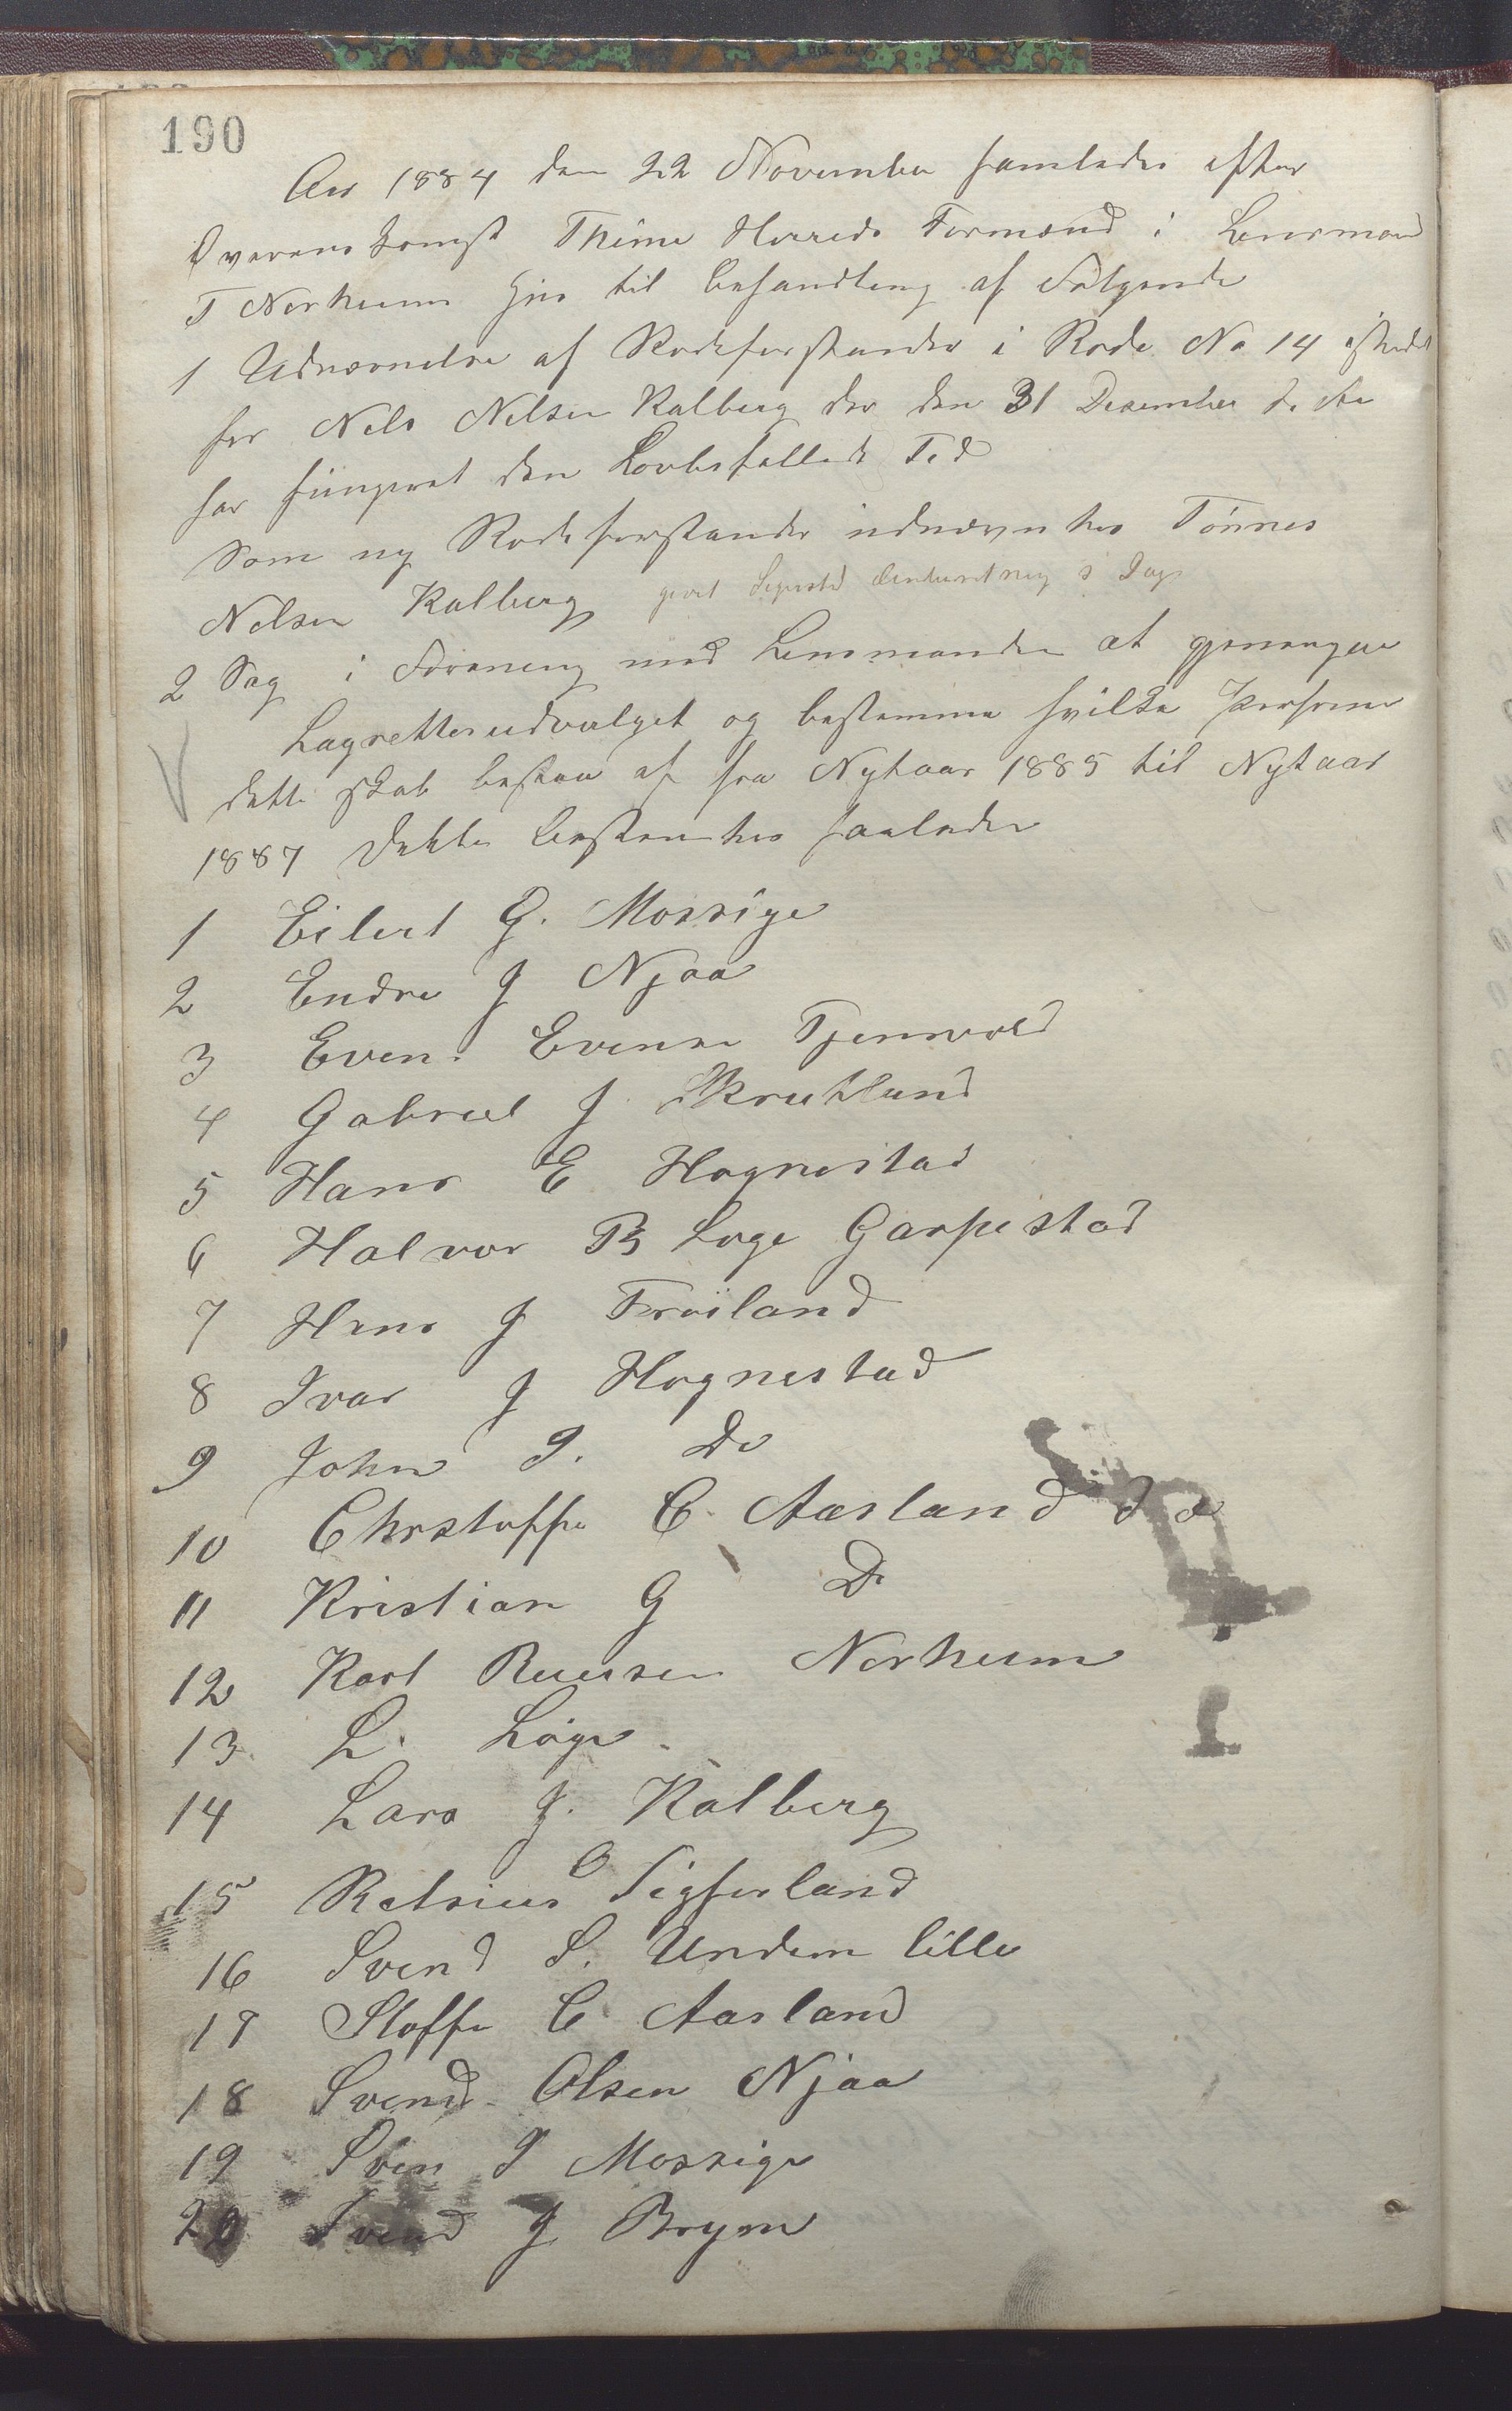 190
Aar 1884 den 22 November samledes efter
Overenskomst Thime Herreds Formænd i Lensmand
T Nerheims Hus til Behandling af Følgende
1 Udnævnelse af Rodeforstander i Rode No 14 istedet
for Nels Nelsen Kalberg der den 31 Desember d. Aar
har fungeret den Lovbefallede Tid
Som ny Rodeforstander udnævntes Tønnes
Nelsen Kalberg givet Underretning i Dag
2 Sag i Forening med Lensmanden at gjenomgaa
Lagretteudvalget og bestemme hvilke Personer
dette skal bestaa af fra Nytaar 1885 til Nytaar
1887 Dette bestemtes saaledes
1 Eilert G. Mossige
2 Endre J Njaa
3 Even Evensen Tjensvold
4 Gabriel J Skrutlund
5 Hans E Hognestad
6 Halvor B Loge Garpestad
7 Hans J Frøiland
8 Ivar J Hognestad
9 John I. Do
10 Chrstoffer C. Aasland
11 Kristian G Do
12 Karl Reiersen Nerheim
13 L. Løge
14 Lars J. Kalberg
15 Retsius O Tigferland
16 Svend S. Undem lille
17 Stoffer C Aasland
18 Svend Olsen Njaa
19 Sven I Mossige
20 Svend J Bryne